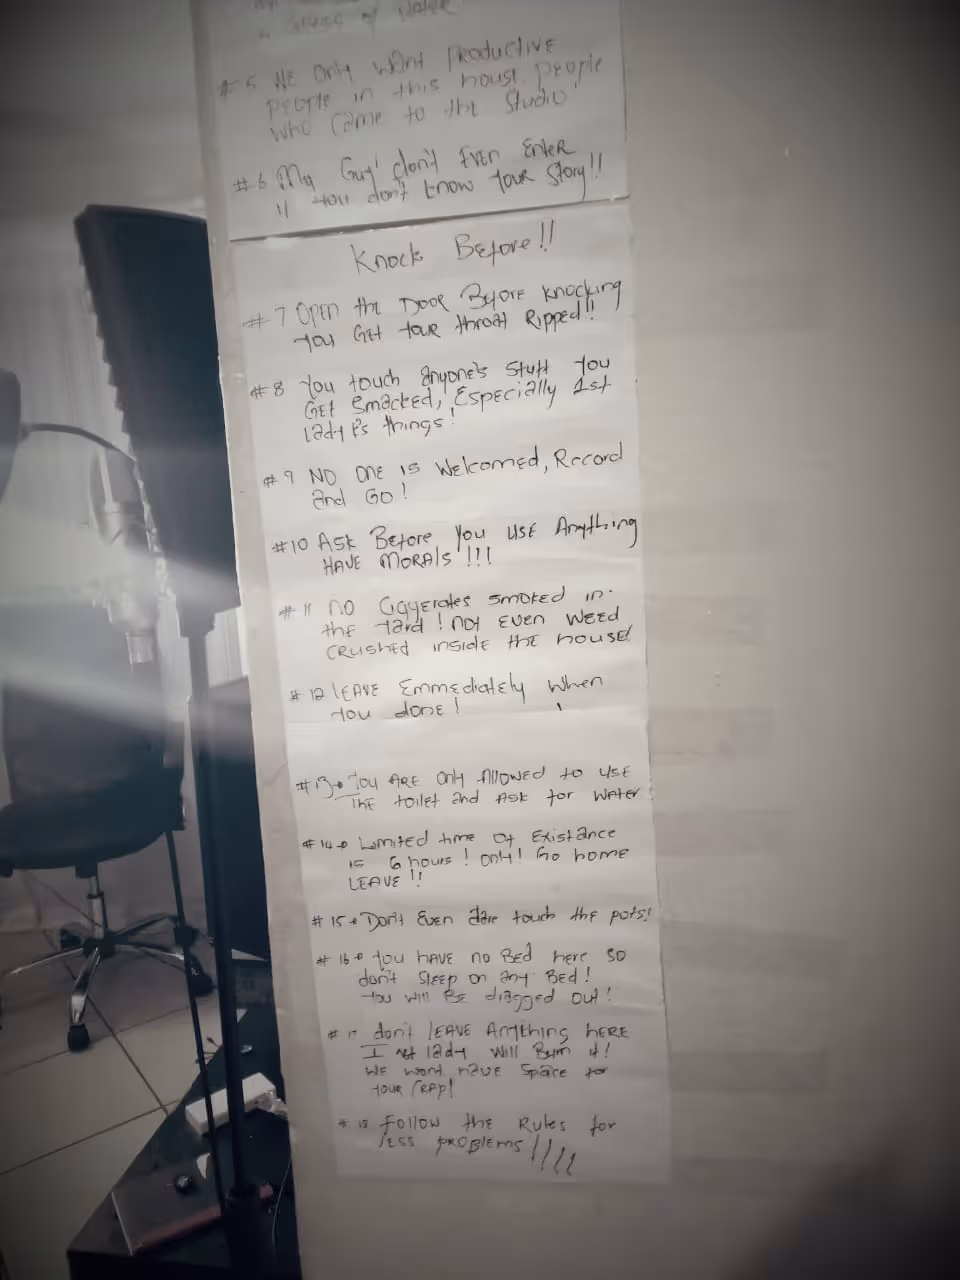 a Glass of water
#5 WE Only want Productive
People in this house. People
who came to the Studio!
#6 My Guy! don't Even Enter
if You don't know Your Story!!
Knock Before!!
#7 Open the Door Before knocking
You Get Your throat Ripped!!
#8 You touch anyone's Stuff You
Get Smacked, Especially 1st
lady's things!
#9 NO ONE is Welcomed, Record
and GO!
#10 Ask Before You USE Anything
HAVE MORALS!!!
#11 NO Ciggerates smoked in
the Yard! NOT EVEN WEED
CRUSHED inside the house!
#12 LEAVE Emmediately when
You done!
#13 You ARE Only Allowed to USE
The toilet and ASK for WATER!
#14 Limited time of Existance
is 6 hours! Only! Go home
LEAVE!!
#15 Don't Even dare touch the pots!
#16 You HAVE no Bed here so
don't Sleep on any Bed!
You will BE dragged out!
#17 don't LEAVE Anything HERE
I lady will Burn it!
WE wont have Space for
Your CRAP!
#18 Follow the Rules for
less problems!!!!